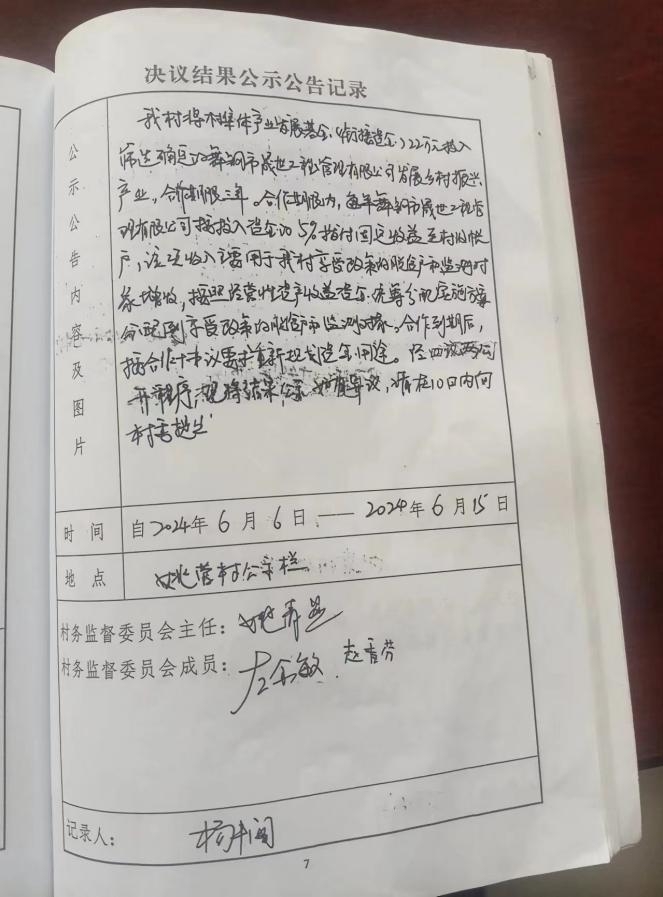 决议结果公示公告记录
公示公告内容及图片
我村将村集体产业发展基金(衔接资金)22万元投入
筛选确定的舞钢市晟世工程管理有限公司发展乡村振兴
产业,合作期限三年。合作期限内,每年舞钢市晟世工程管
理有限公司按投入资金的5%拨付固定收益至村的帐
户,该项收入主要用于我村享受政策的脱贫户和监测对
象增收,按照经营性资产收益资金 分配实施方案
分配到享受政策的脱贫户和监测对象。合作到期后,
按合作协议要求重新规划资金用途。经四议两公
开程序,现将结果公示,如有异议,请在10日内向
村委提出
时 间
自2024年 6 月 6 日 —— 2024年 6 月 15 日
地 点
姚营村公示栏
村务监督委员会主任:姚
村务监督委员会成员: 敏 赵香芬
记录人: 杨
7